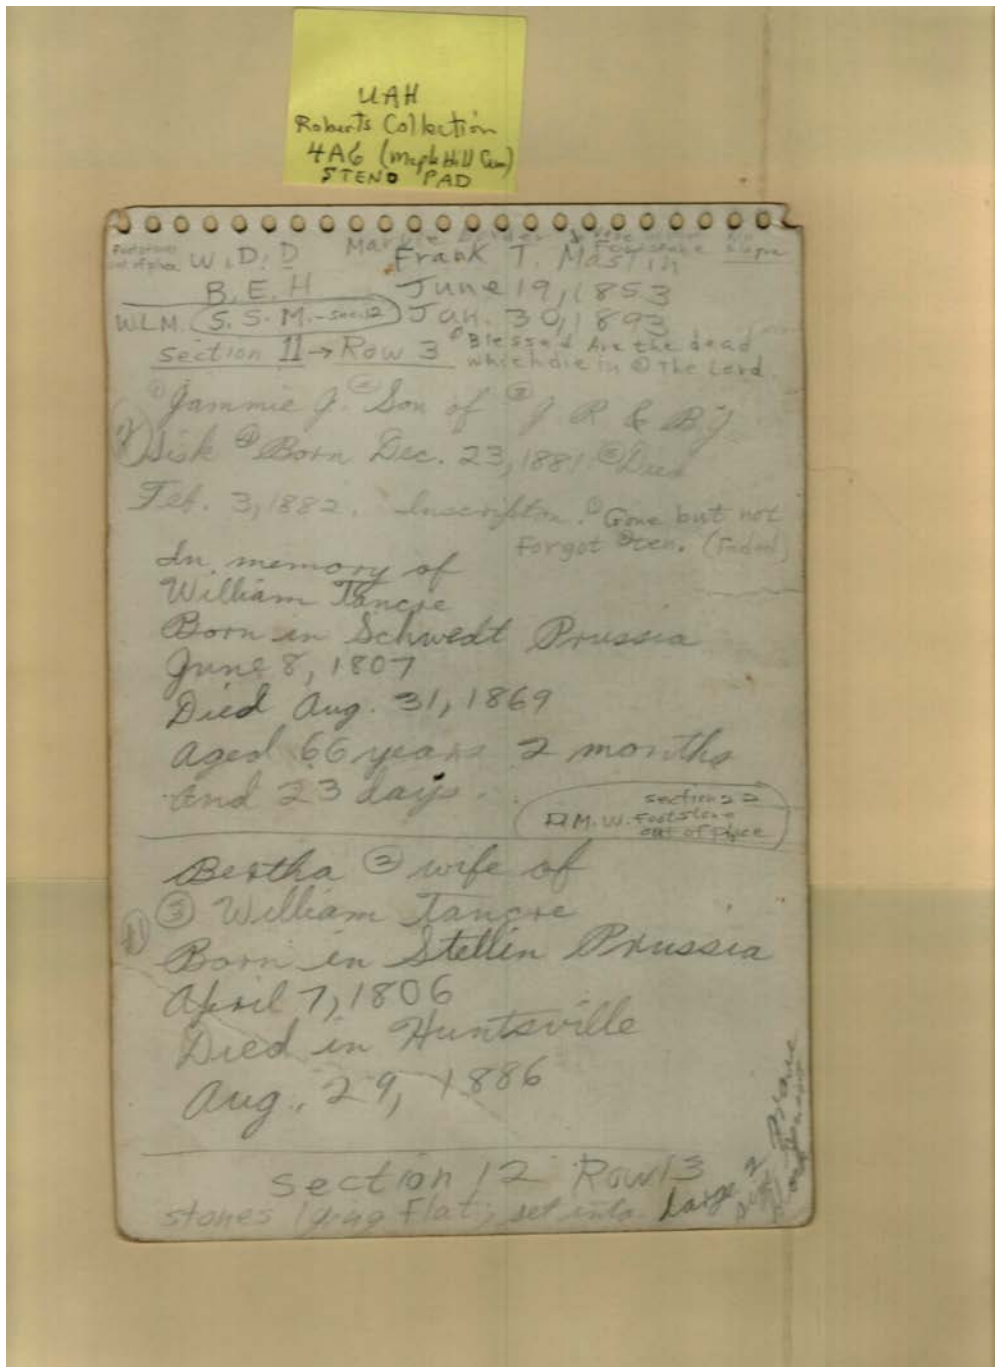 UAH
Roberts Collection
4A6 (Maple Hill Cem)
STENO PAD
Footstones out of place W.D.D
Frank T. Mastin
B.E.H June 19, 1853
W.L.M. S.S.M.-Sec.12 Jan. 30, 1893
section 11→Row 3 ① Blessed Are the dead
which die in ② The Lord.
① Jammie J. ② Son of ③ J R & B J
Sisk ④ Born Dec. 23, 1881 ⑤ Died
Feb. 3, 1882. Inscription. ① Gone but not
Forgot ② ten. (Faded)
In memory of
William Tancre
Born in Schwedt Prussia
June 8, 1807
Died Aug. 31, 1869
aged 66 years 2 months
and 23 days.
section 22
D.M.W. Footstone
out of place
Bertha ② wife of
③ William Tancre
Born in Stellin Prussia
April 7, 1806
Died in Huntsville
Aug. 29, 1886
section 12 Row 13
stones lying flat; set into large